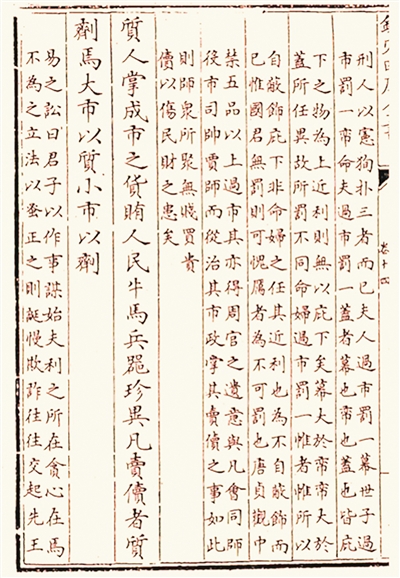 欽定四庫全書
卷十四
刑人以憲徇扑三者而已夫人過市罰一幕世子過
市罰一帟命夫過市罰一蓋者幕也帟也蓋也皆庇
下之物為上近利則無以庇下矣幕大於帟帟大於
蓋所任異故所罰不同命婦過市罰一帷者帷所以
自蔽飾庇下非命婦之任其近利也為不自蔽飾而
已惟國君無罰則可愧厲者為不可罰也唐貞觀中
禁五品以上過市其亦得周官之遺意與凡會同師
役市司帥賈師而從治其市政掌其賣儥之事如此
則師衆所聚無賤買貴
儥以傷民財之患矣
質人掌成市之貨賄人民牛馬兵器珍異凡賣儥者質
劑焉大市以質小市以劑
易之訟曰君子以作事謀始夫利之所在貪心在焉
不為之立法以蚤正之則誕慢欺詐往往交起先王